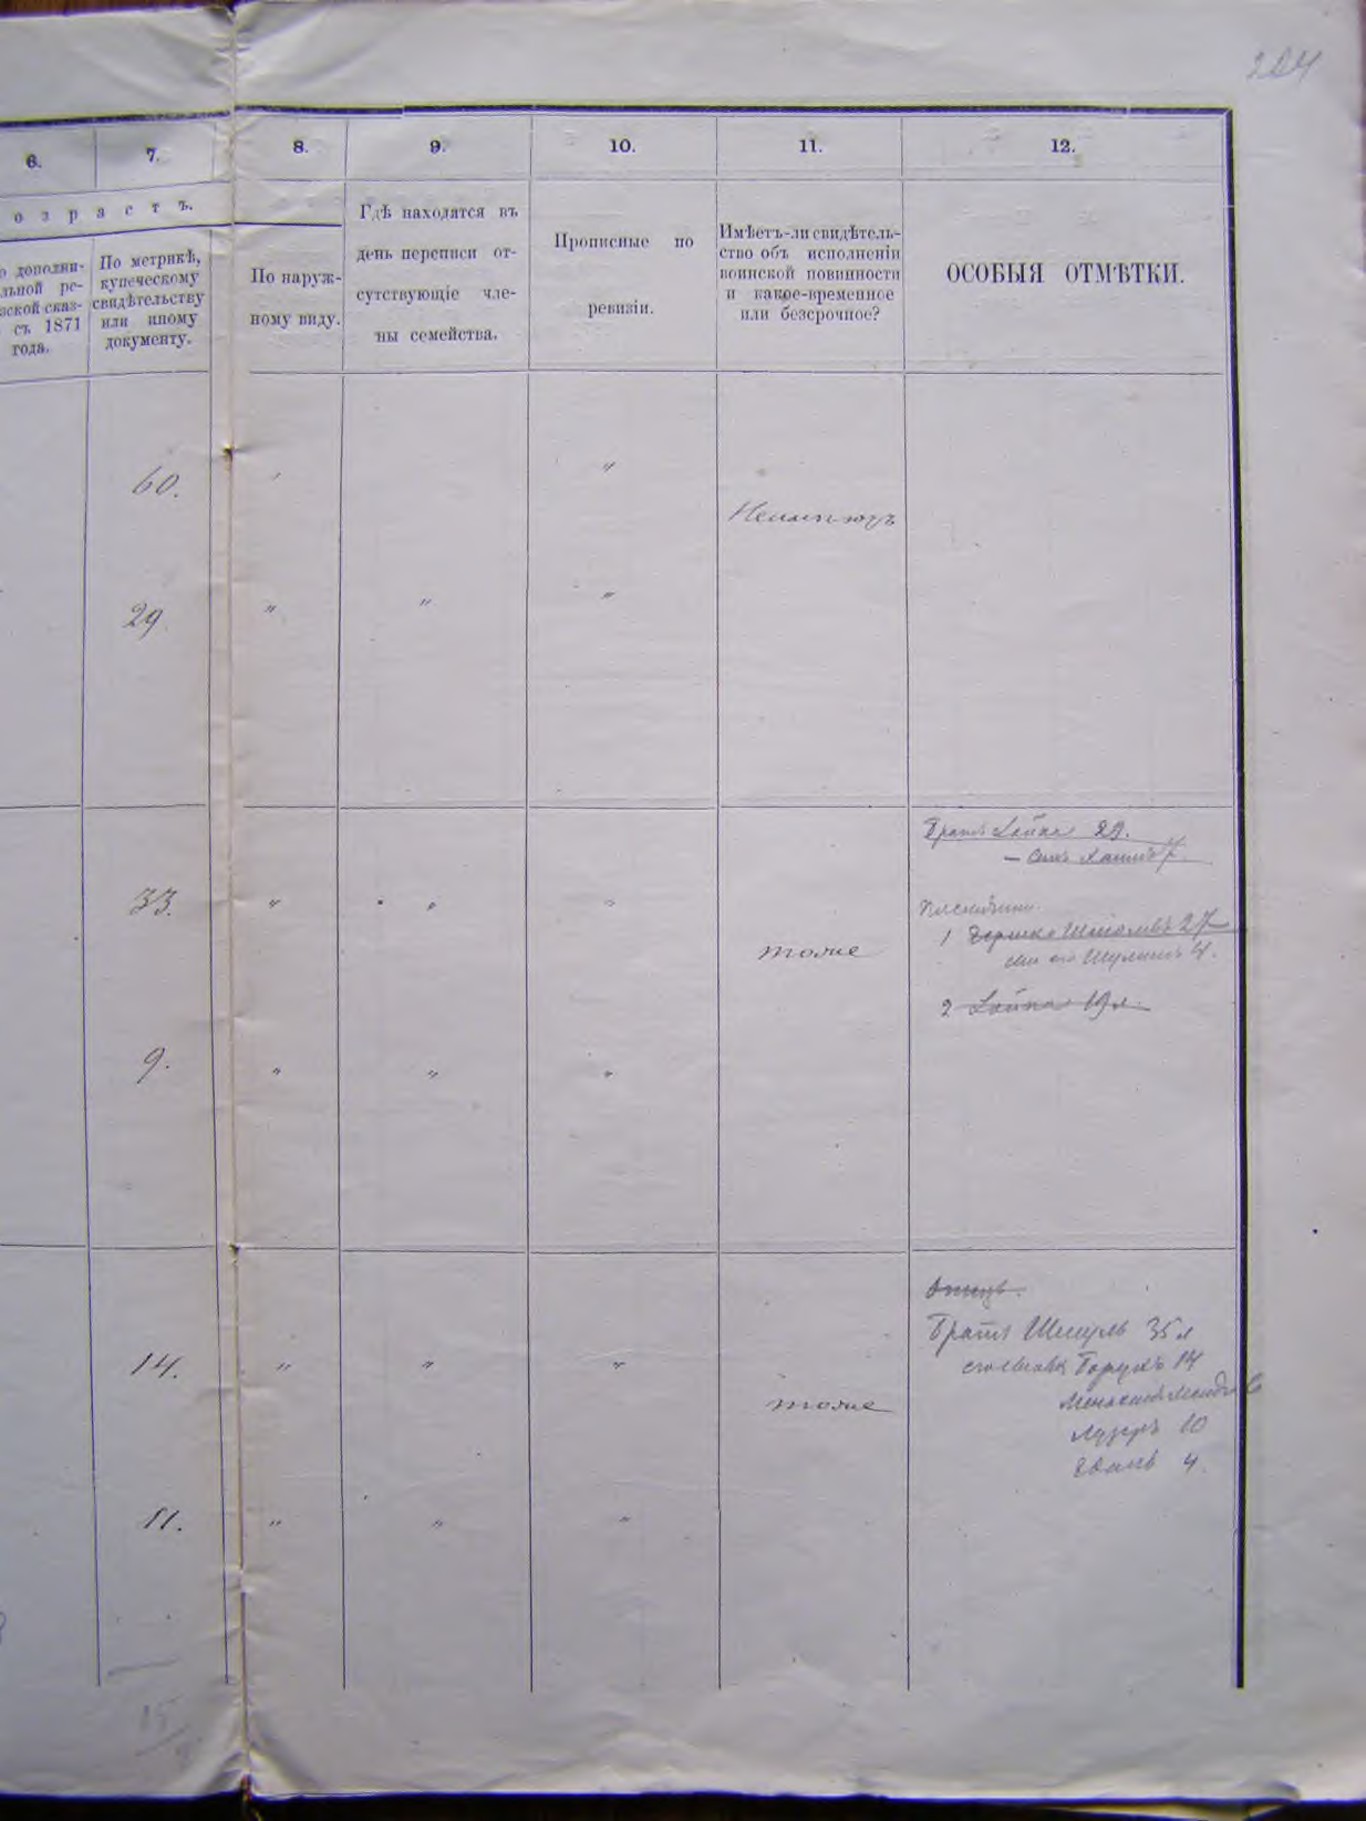 204
6.
7.
8.
9.
10.
11.
12.
озрастъ.
о дополни-
льной ре-
зской сказ-
съ 1871
года.
По метрикѣ,
купеческому
свидѣтельству
или иному
документу.
По наруж-
ному виду.
Гдѣ находятся въ
день переписи от-
сутствующіе чле-
ны семейства.
Прописные по
ревизіи.
Имѣетъ-ли свидѣтель-
ство объ исполненіи
воинской повинности
и какое-временное
или безсрочное?
ОСОБЫЯ ОТМѢТКИ.
60. "
Неимѣютъ
29 " " "
Братъ Лейба 29.
33. " " "
1 27
тоже
4.
2 Лейба 19 л.
9. " " "
Отецъ.
Братъ Шмуль 35 л
14. " " "
сыновья Борухъ 14
тоже
Лузеръ 10
4.
11. " " "
15